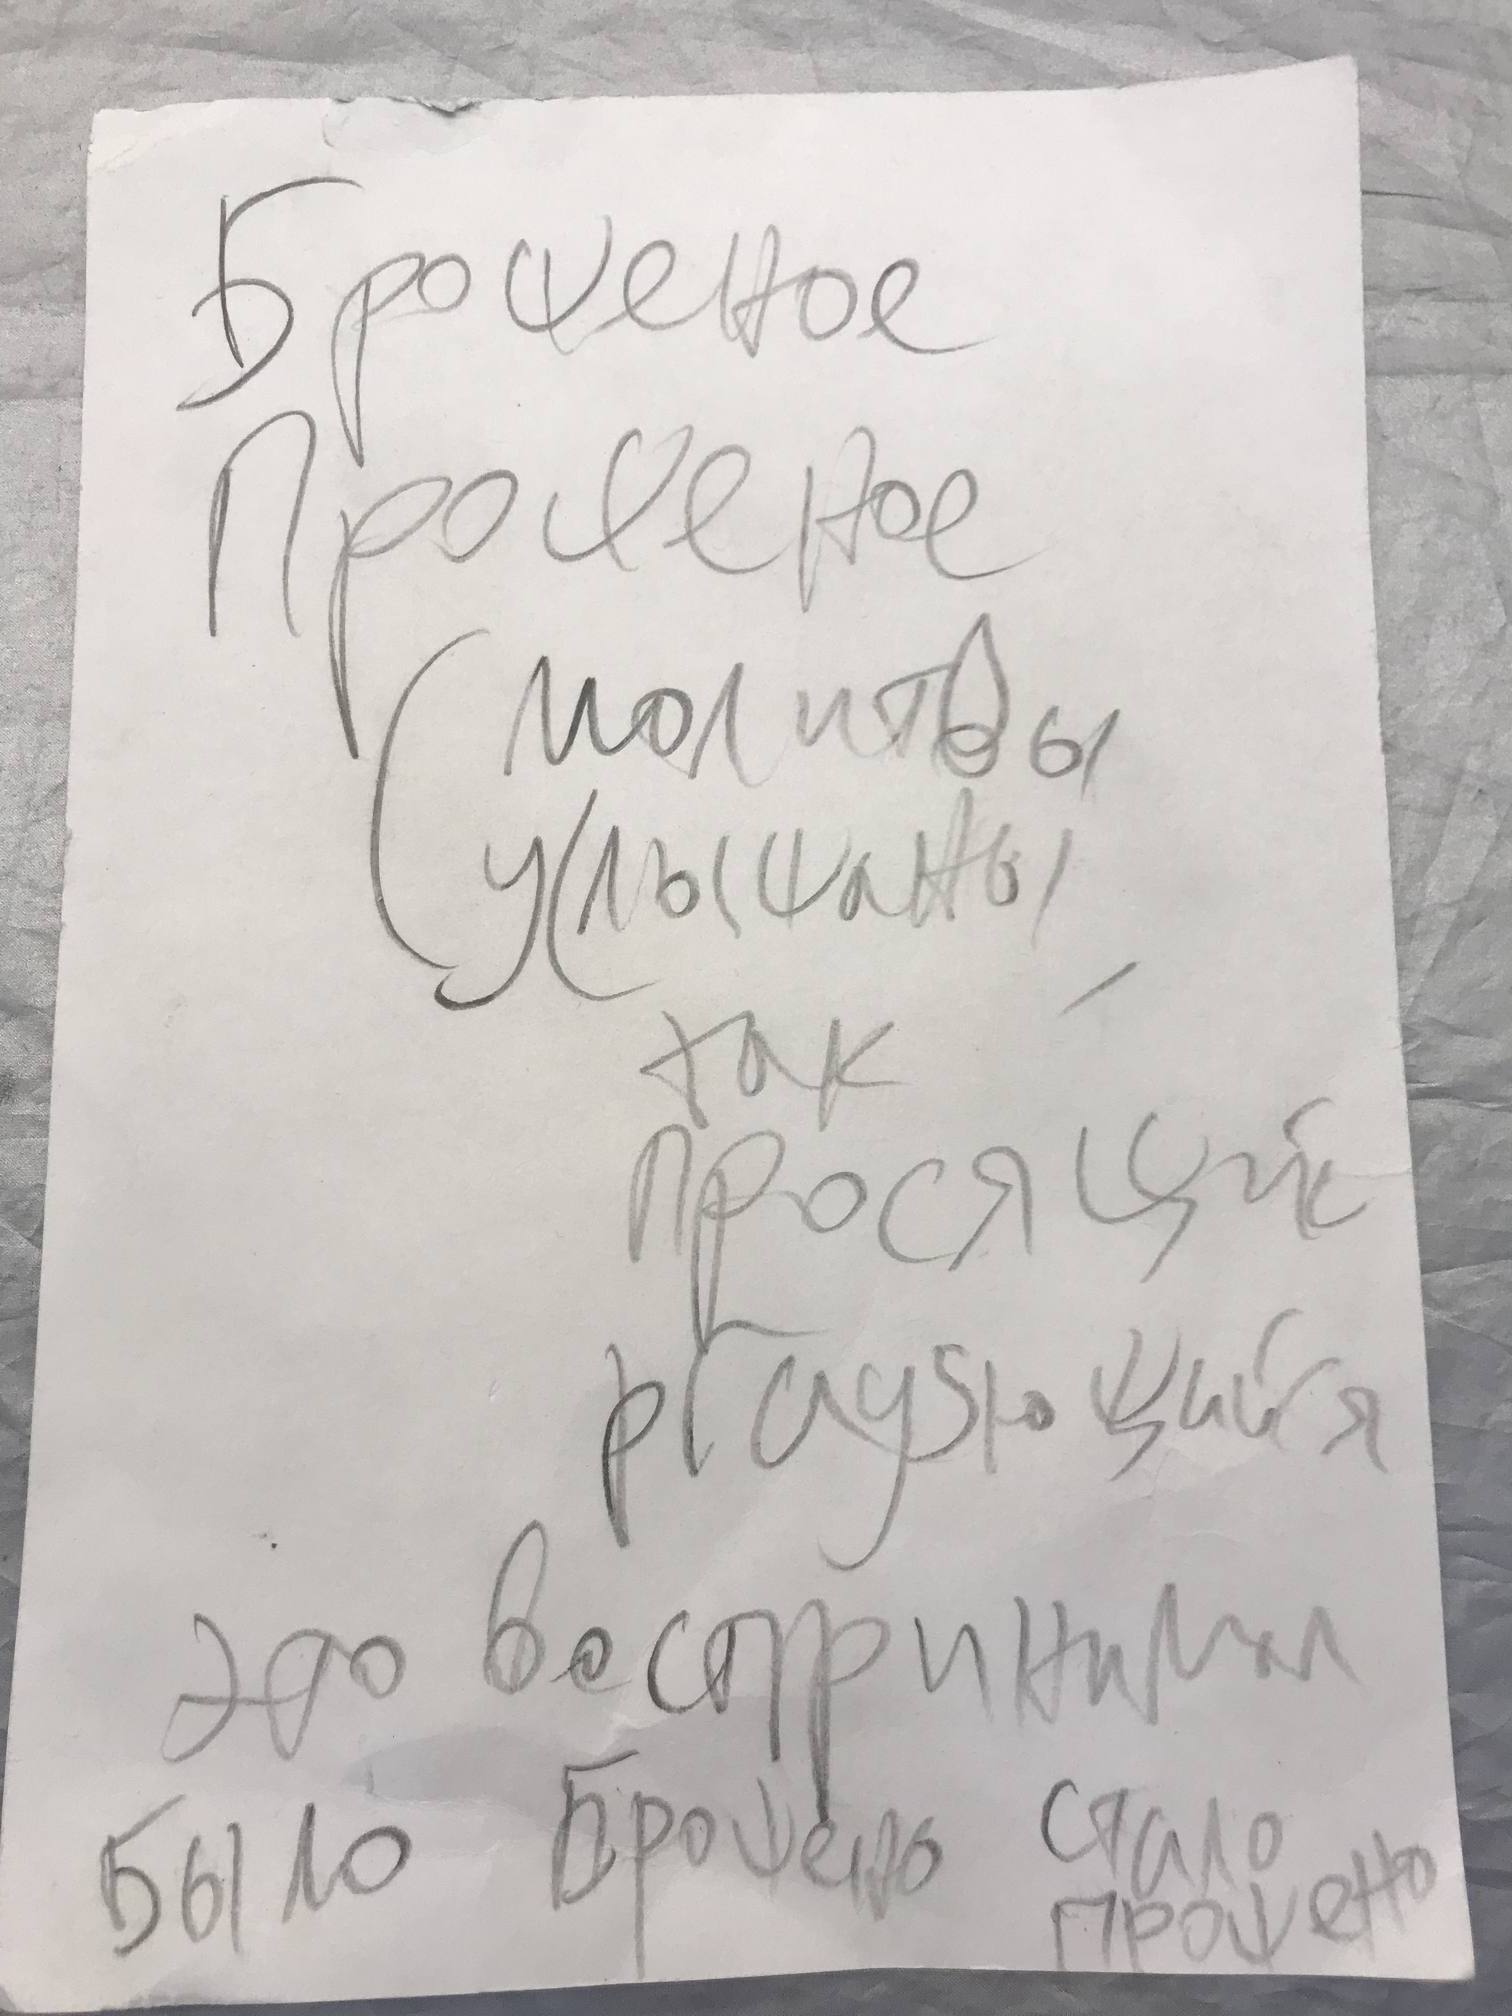 Брошеное
Прошеное
(молитвы
услышаны
так
просящий
это воспринимал
Было Брошено стало
прошено